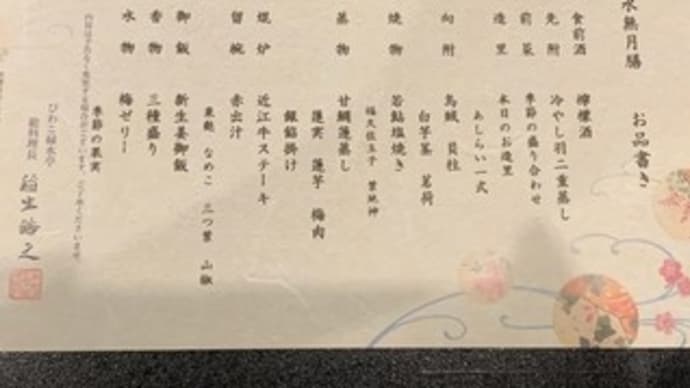 水無月膳
お品書き
食前酒 檸檬酒
先附 冷やし羽二重蒸し
前菜 季節の盛り合わせ
造里 本日のお造里
あしらい一式
向附 鳥賊 貝柱
白芋茎 茗荷
焼物 若鮎塩焼き
蒸物 甘鯛蓮蒸し
蓮実 蓮芋 梅肉
銀餡掛け
焜炉 近江牛ステーキ
留椀 赤出汁
東麩 なめこ 三つ葉 山椒
御飯 新生姜御飯
香物 三種盛り
水物 梅ゼリー
季節の果実
びわこ緑水亭
総料理長